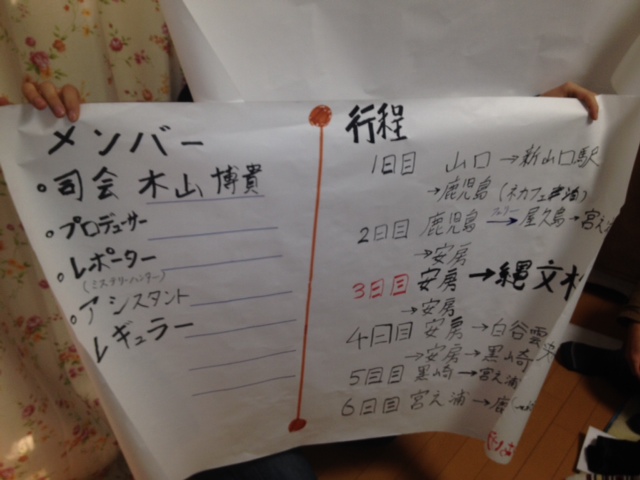 メンバー
・司会 木山博貴
・プロデューサー
・レポーター
(ミステリーハンター)
・アシスタント
レギュラー
行程
1日目 山口→新山口駅
→鹿児島(ネカフェ泊)
2日目 鹿児島→屋久島→宮之浦
→安房
3日目 安房→縄文杉
→安房
4日目 安房→白谷雲
→安房→黒崎
5日目 黒崎→宮之浦
6日目 宮之浦→鹿